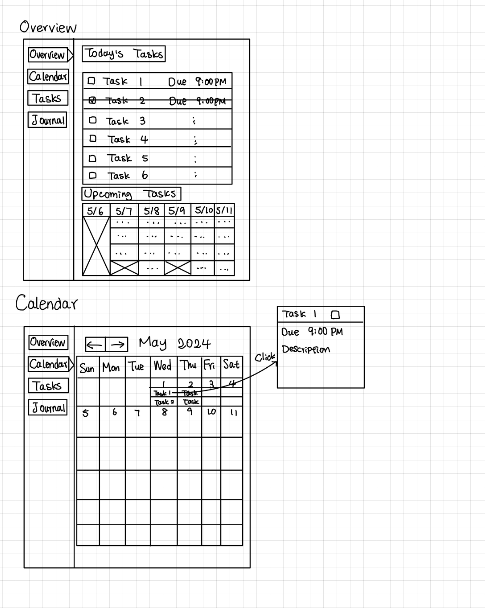 Overview
Overview
Calendar
Tasks
Journal
Today's Tasks
Task 1 Due 9:00 PM
Task 2 Due 9:00 PM
Task 3 :
Task 4 :
Task 5 :
Task 6 :
Upcoming Tasks
5/6 5/7 5/8 5/9 5/10 5/11
... ... ... ... ...
... ... ... ... ...
... ... ... ... ...
... ... ...
Calendar
Overview
Calendar
Tasks
Journal
← → May 2024
Sun Mon Tue Wed Thu Fri Sat
1 2 3 4
Task 1 Task
Task 2 Task
5 6 7 8 9 10 11
Click
Task 1
Due 9:00 PM
Description